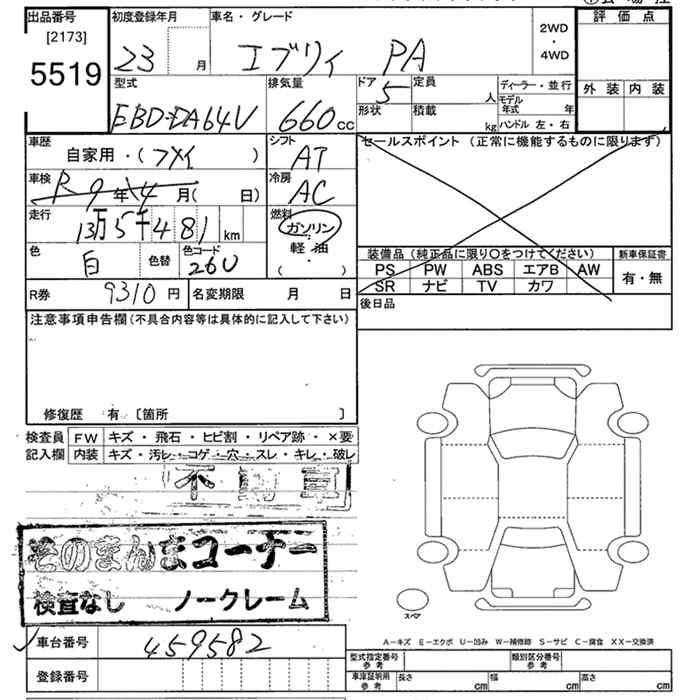 出品番号
[2173]
5519
初度登録年月
23 月
車名・グレード
エブリィ PA
2WD
・
4WD
評価点
外装 内装
型式
EBD-DA64V
排気量
660 cc
ドア
5
形状
定員
人
積載
kg
ディーラー・並行
モデル年式 年
ハンドル 左・右
車歴
自家用・( )
シフト
AT
車検
R 9年 4月( 日)
冷房
AC
走行
13万5千481 km
燃料
ガソリン
・
軽油
( ・ )
色
白
色替
色コード
26U
セールスポイント (正常に機能するものに限ります)
装備品 (純正品に限り〇をつけてください)
新車保証書
PS PW ABS エアB AW
SR ナビ TV カワ
有・無
R券 9310円
名変期限 月 日
後日品
注意事項申告欄(不具合内容等は具体的に記入して下さい)
修復歴 有 〔箇所 〕
検査員記入欄
FW キズ・飛石・ヒビ割・リペア跡・×要
内装 キズ・汚レ・コゲ・穴・スレ・キレ・破レ
そのまんまコーナー
検査なし ノークレーム
スペア
A-キズ E-エクボ U-凹み W-補修跡 S-サビ C-腐食 XX-交換済
車台番号 459582
登録番号
型式指定番号 参考
類別区分番号 参考
車庫証明用 参考
長さ cm 幅 cm 高さ cm